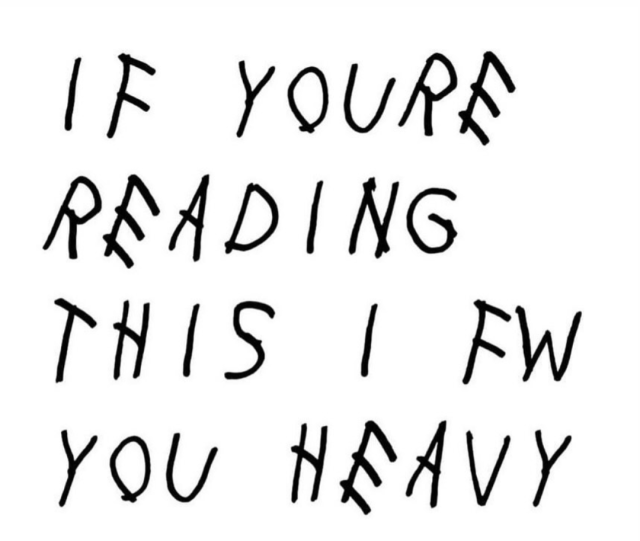 IF YOURE
READING
THIS I FW
YOU HEAVY